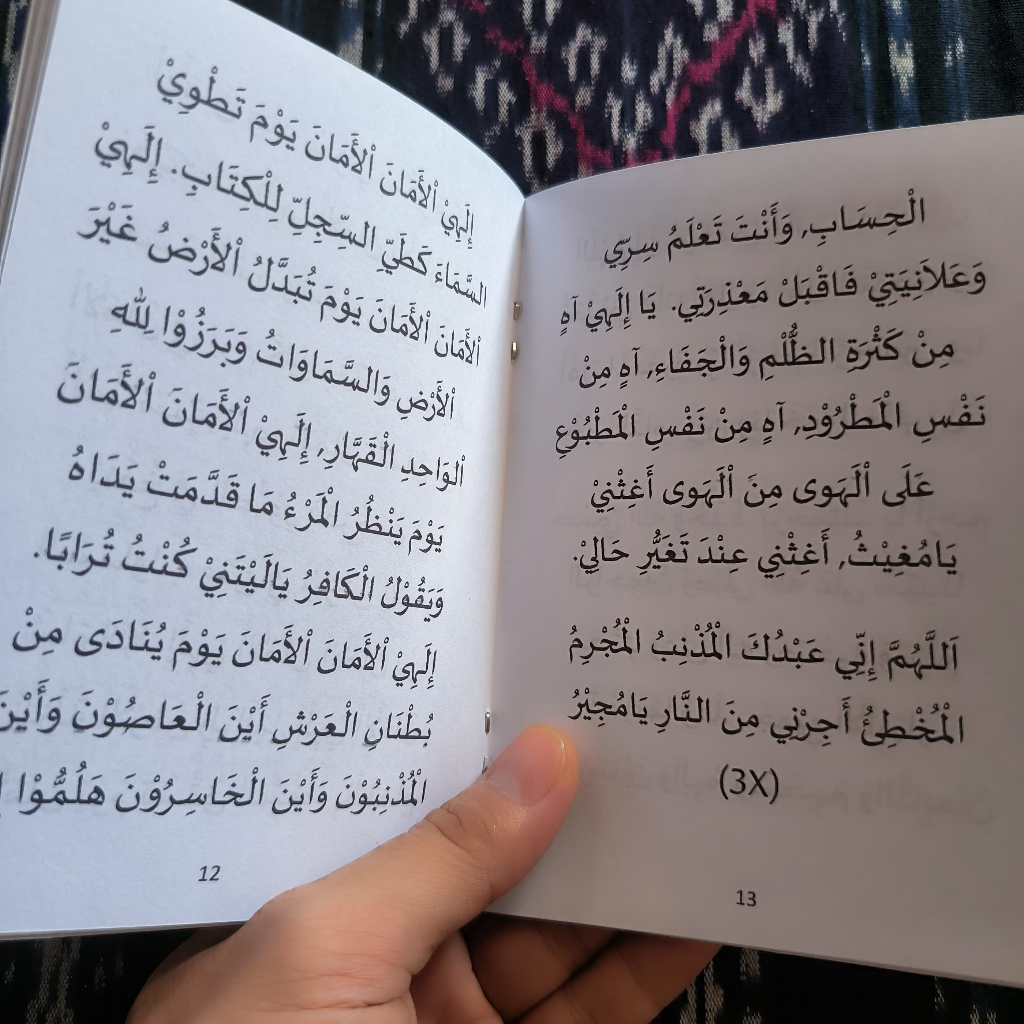 إِلَهِيْ اْلأَمَانَ اْلأَمَانَ يَوْمَ تَطْوِيْ
السَّمَاءَ كَطَيِّ السِّجِلِّ لِلْكِتَابِ. إِلَهِيْ
اْلأَمَانَ اْلأَمَانَ يَوْمَ تُبَدَّلُ اْلأَرْضُ غَيْرَ
اْلأَرْضِ وَالسَّمَاوَاتُ وَبَرَزُوْا لِلّٰهِ
اْلوَاحِدِ الْقَهَّارِ, إِلَهِيْ اْلأَمَانَ اْلأَمَانَ
يَوْمَ يَنْظُرُ الْمَرْءُ مَا قَدَّمَتْ يَدَاهُ
وَيَقُوْلُ الْكَافِرُ يَالَيْتَنِيْ كُنْتُ تُرَابًا.
إِلَهِيْ اْلأَمَانَ اْلأَمَانَ يَوْمَ يُنَادَى مِنْ
بُطْنَانِ الْعَرْشِ أَيْنَ الْعَاصُوْنَ وَأَيْنَ
الْمُذْنِبُوْنَ وَأَيْنَ الْخَاسِرُوْنَ هَلُمُّوْا
12
الْحِسَابِ, وَأَنْتَ تَعْلَمُ سِرِّي
وَعَلاَنِيَتِيْ فَاقْبَلْ مَعْذِرَتِي. يَا إِلَهِيْ آهٍ
مِنْ كَثْرَةِ الظُّلْمِ وَالْجَفَاءِ, آهٍ مِنْ
نَفْسِ الْمَطْرُوْدِ, آهٍ مِنْ نَفْسِ الْمَطْبُوْعِ
عَلَى اَلْهَوى مِنَ اَلْهَوى أَغِثْنِيْ
يَامُغِيْثُ, أَغِثْنِي عِنْدَ تَغَيُّرِ حَالِيْ.
اَللَّهُمَّ إِنِّي عَبْدُكَ الْمُذْنِبُ الْمُجْرِمُ
الْمُخْطِئُ أَجِرْنِي مِنَ النَّارِ يَامُجِيْرُ
(3X)
13